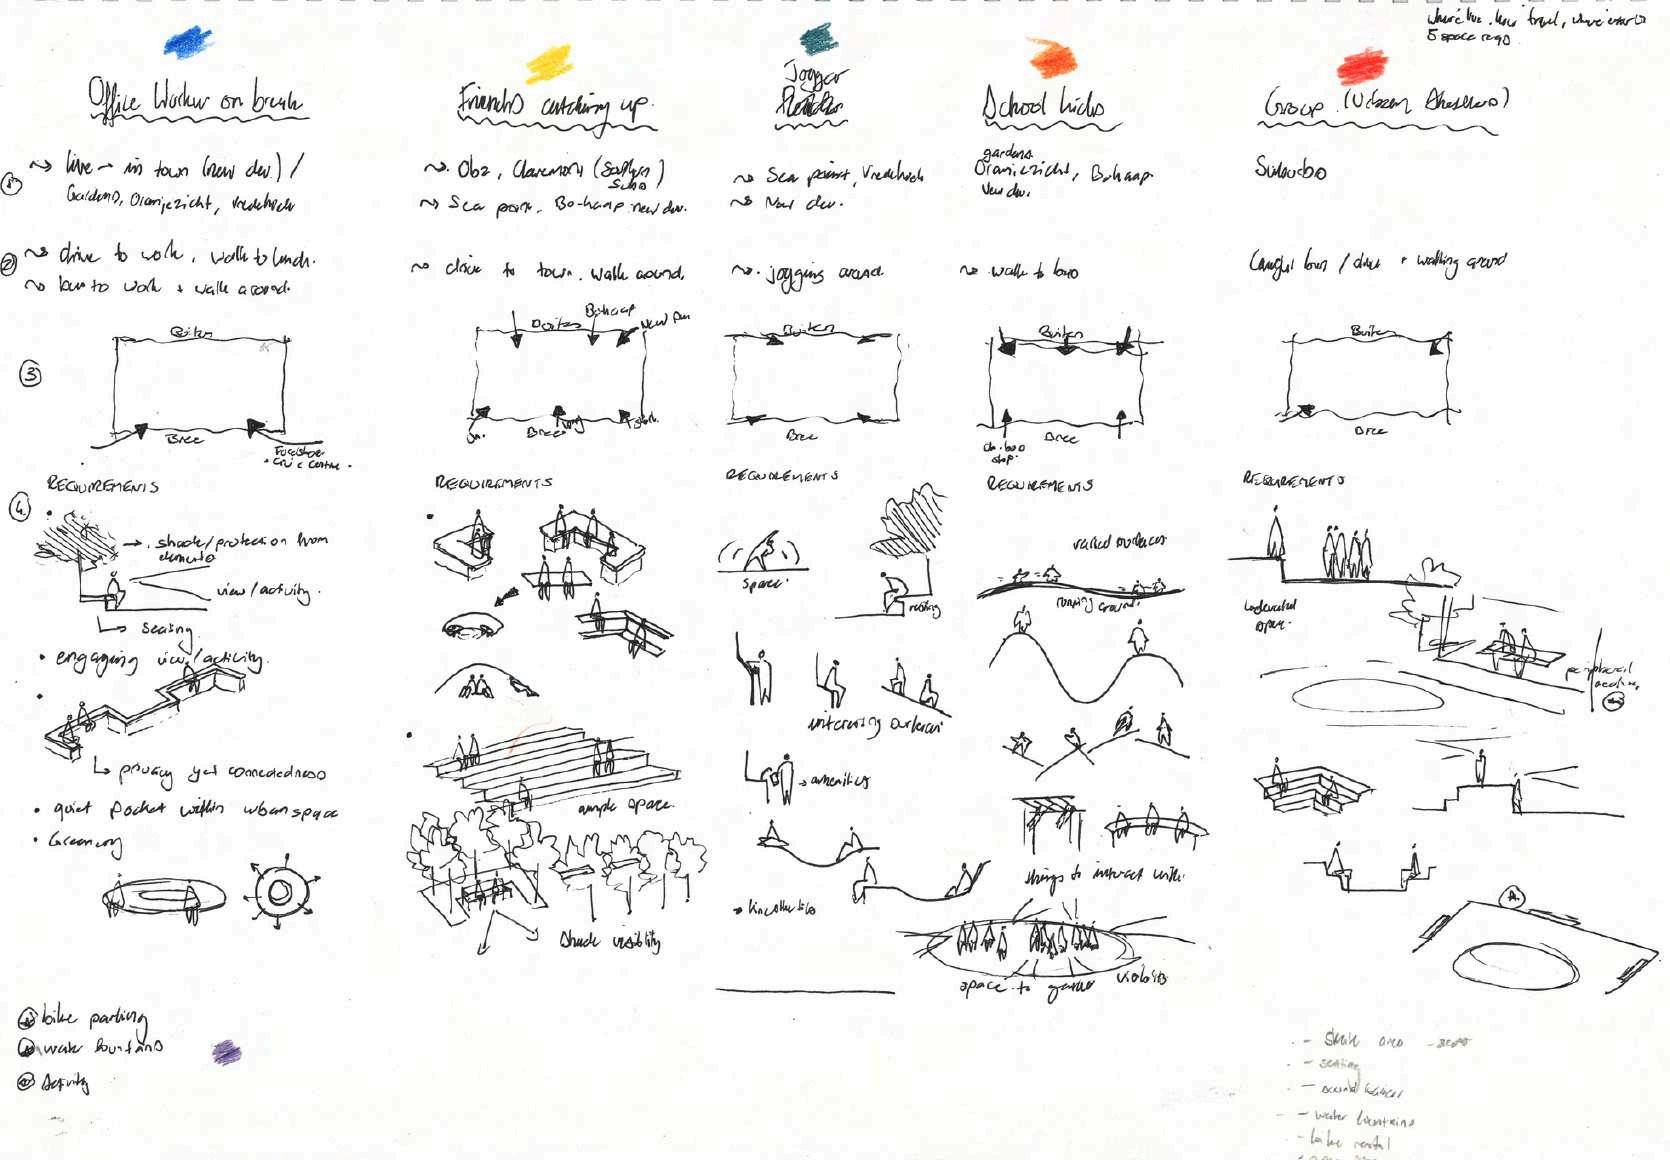 where live, how travel, where enter
5 space reqs.
Office Worker on break
Friends catching up.
Jogger
School kids
Group (Urban
①
~> live - in town (new dev.) /
Gardens, Oranjezicht, Vredehoek
~> Obz, Claremont (Southern
Subs)
~> Sea point, Bo-kaap new dev.
~> Sea point, Vredehoek
~> New dev.
gardens
Oranjezicht, Bo-kaap
New dev.
Suburbs
②
~> drive to work, walk to lunch.
~> bus to work + walk around.
~> drive to town. walk around.
~> jogging around
~> walk to bus
bus / drive + walking around
③
Buiten
Bree
Civic Centre
Buiten
Bo-kaap
New Dev
Bree
Buiten
Bree
Buiten
Bree
stop.
Buiten
Bree
④
REQUIREMENTS
→ shade/protection from
elements
view/activity.
Seating
• engaging view/activity.
privacy yet connectedness
• quiet pocket within urban space
• Greening
REQUIREMENTS
ample space.
Shade visibility
REQUIREMENTS
space.
resting
interesting surfaces
→ amenities
REQUIREMENTS
varied surfaces
running around.
things to interact with.
space to gather
visibility
REQUIREMENTS
space.
peripheral
A.
bike parking
water fountains
Activity
- seating
- water fountains
- bike rental